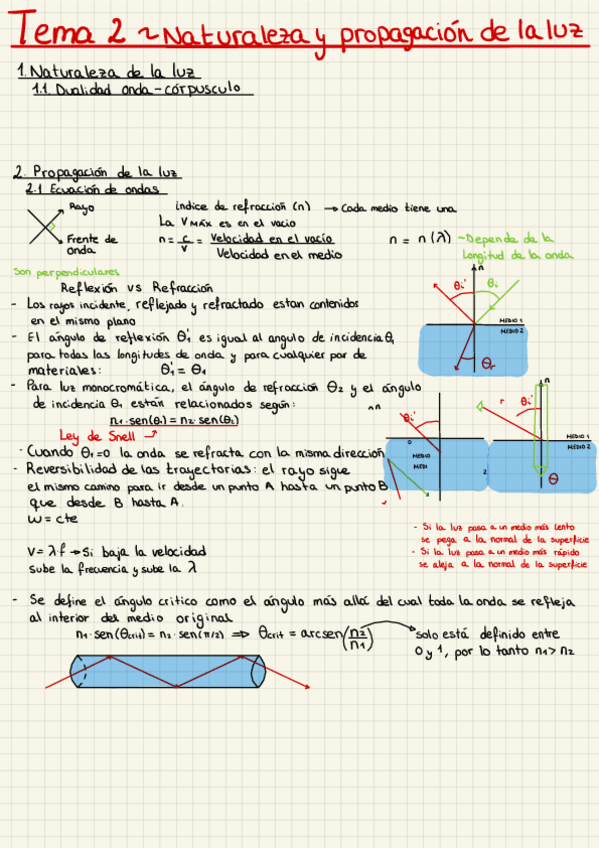 Tema 2 ~ Naturaleza y propagación de la luz
1. Naturaleza de la luz
1.1. Dualidad onda-córpusculo
2. Propagación de la luz
2.1 Ecuación de ondas
Rayo
Frente de onda
Son perpendiculares
Índice de refracción (n) → Cada medio tiene una
La VMÁX es en el vacio
n = c/v = Velocidad en el vacío / Velocidad en el medio
n = n(λ) ~Depende de la
longitud de la onda
Reflexión vs Refracción
- Los rayos incidente, reflejado y refractado estan contenidos
en el mismo plano
- El ángulo de reflexión θ₁' es igual al angulo de incidencia θ₁
para todas las longitudes de onda y para cualquier par de
materiales: θ₁' = θ₁
- Para luz monocromática, el ángulo de refracción θ₂ y el ángulo
de incidencia θ₁ están relacionados según:
n₁·sen(θ₁) = n₂·sen(θ₂)
Ley de Snell →
- Cuando θ₁=0 la onda se refracta con la misma dirección
- Reversibilidad de las trayectorias: el rayo sigue
el mismo camino para ir desde un punto A hasta un punto B
que desde B hasta A.
w = cte
V = λ·f → Si baja la velocidad
sube la frecuencia y sube la λ
n
θi'
θi
MEDIO 1
MEDIO 2
θr
n
θi'
MEDIO
n
r
θi'
MEDIO 1
MEDIO 2
2
θ
- Si la luz pasa a un medio más lento
se pega a la normal de la superficie
- Si la luz pasa a un medio más rápido
se aleja a la normal de la superficie
- Se define el ángulo critico como el ángulo más allá del cual toda la onda se refleja
al interior del medio original
n₁·sen(θcrit) = n₂·sen(π/2) ⇒ θcrit = arcsen(n₂/n₁)
solo está definido entre
0 y 1, por lo tanto n₁ > n₂